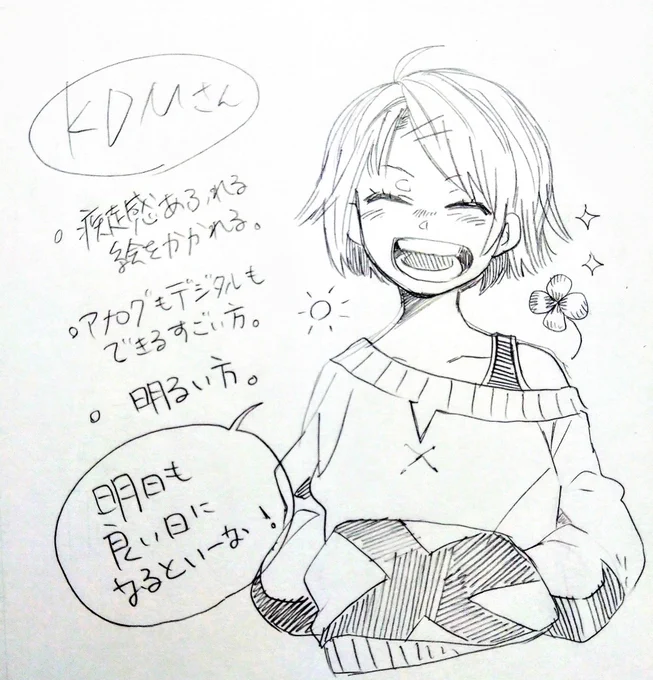 KDMさん
。疾走感あふれる
絵をかかれる。
。アナログもデジタルも
できるすごい方。
。明るい方。
明日も
良い日に
なるといーな!